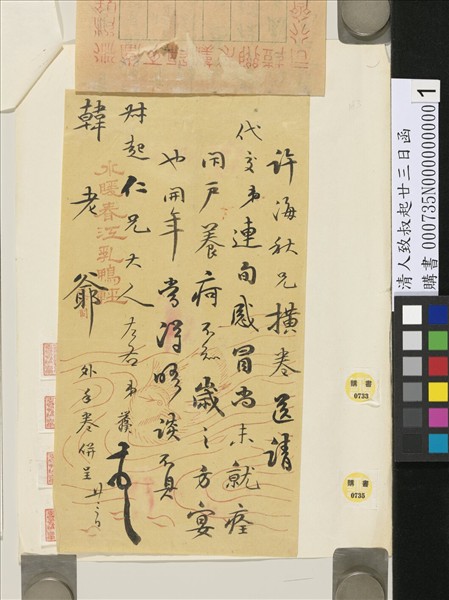 許海秋兄橫卷送請
代交弟連旬感冒尚未就痊
閉戶養疴不知歲之方宴
也開年當得晤談不具
叔起仁兄大人左右弟
外手卷併呈 廿三日
韓老爺
水暖春江乳鴨
清人致叔起廿三日函
購書 000735N000000000
1
購書
0733
購書
0735